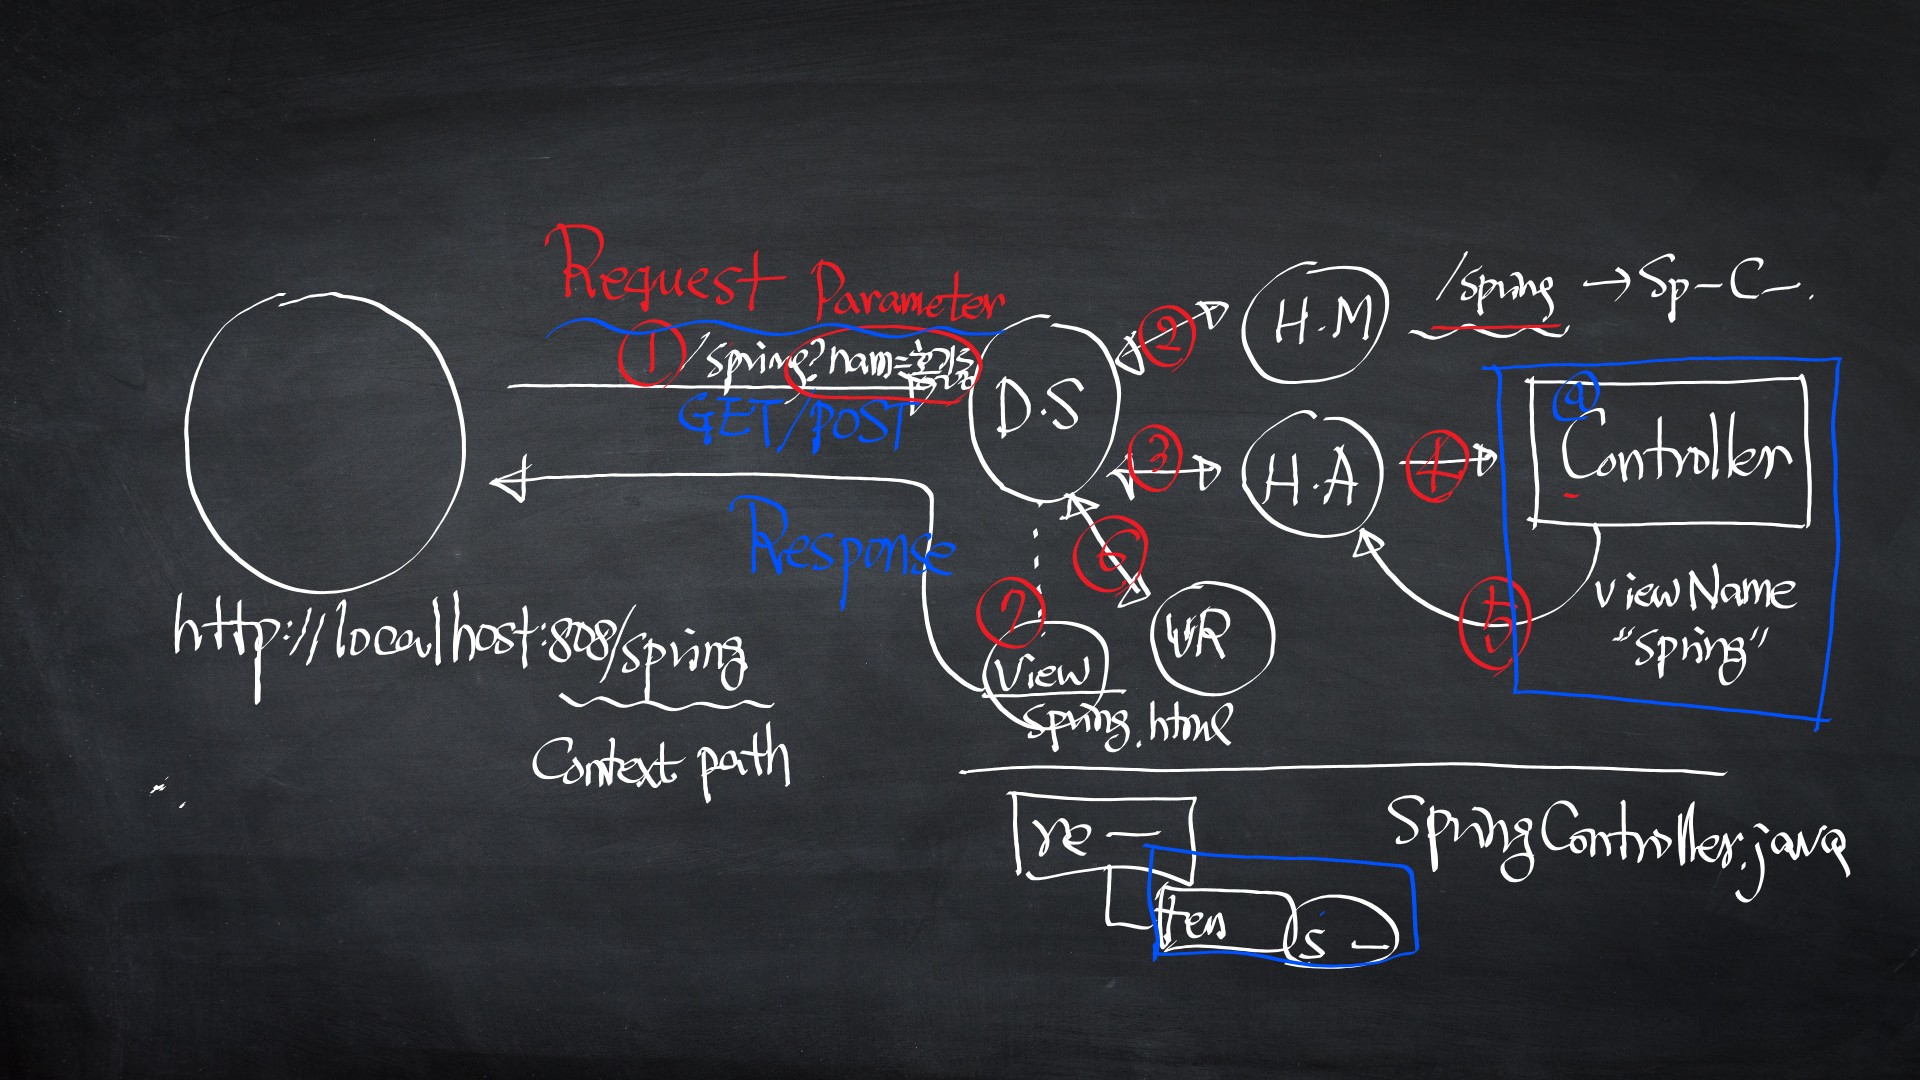 Request Parameter
① /spring?nam=홍길동
GET/POST
Response
http://localhost:808/spring
Context path
D.S
②
H.M
/spring → Sp-C-.
③
H.A
④
@
Controller
⑤
viewName
"spring"
⑥
VR
⑦
View
spring.html
re —
tem
s —
SpringController.java